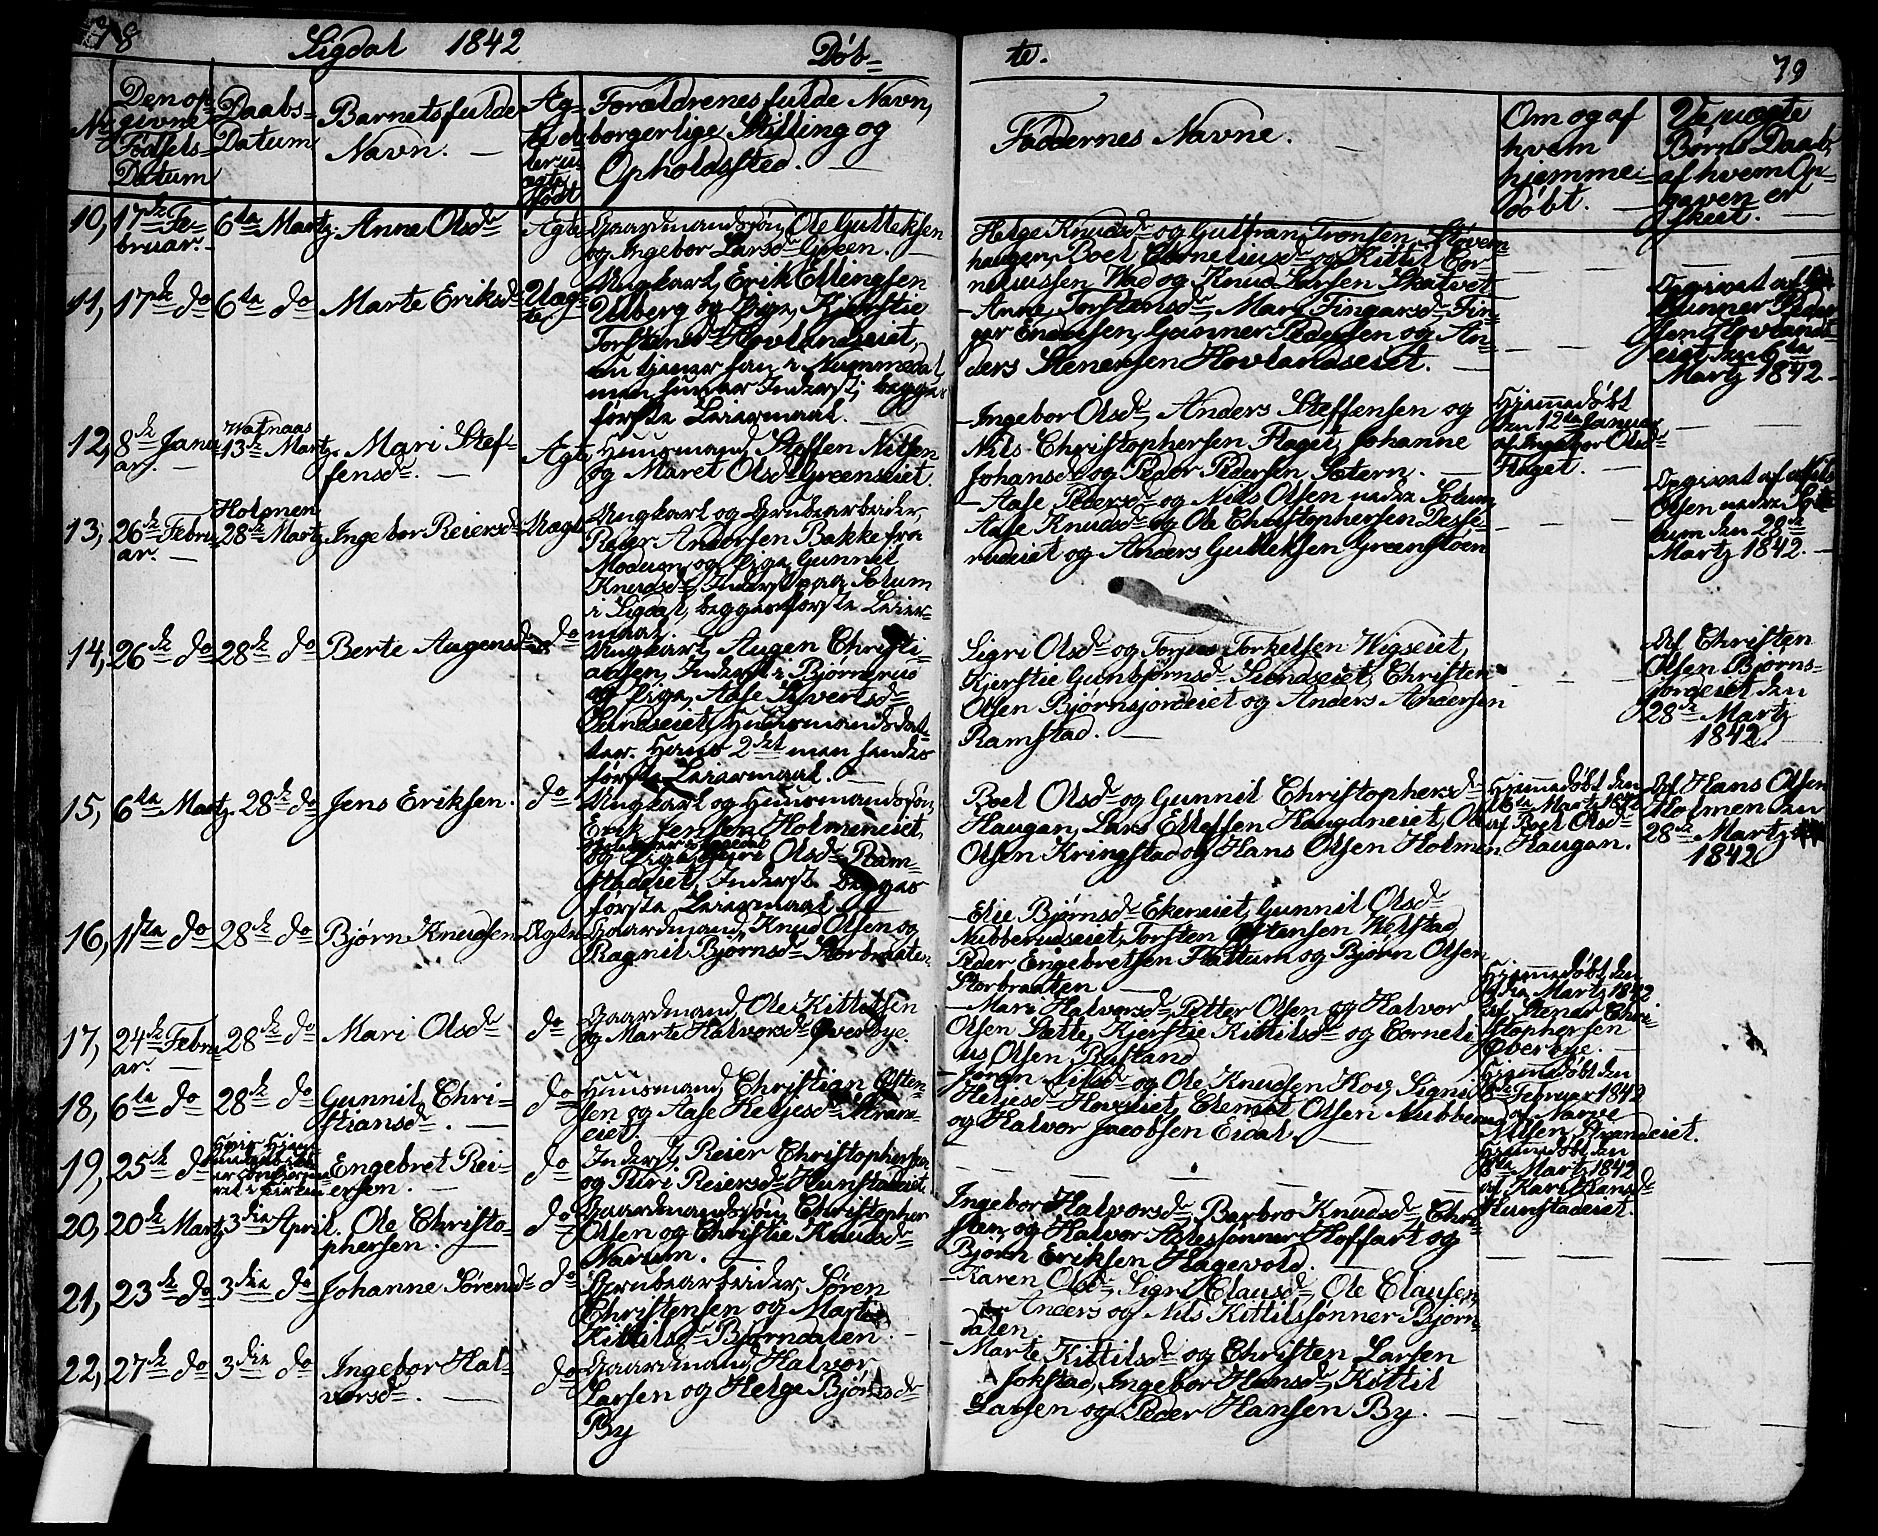 78
Sigdal 1842
Döb=
te.
79
No
Den op=
givne
Födsels=
Datum
Daabs=
Datum
Barnets fulde
Navn. —
Æg=
te
Födt
Forældrenes fulde Navn,
borgerlige Stilling og
Opholdssted. —
Faddernes Navne. —
Om og af
hvem
hjemme=
döbt. —
Uægte
Børns Daab,
af hvem Op=
gaven er
skeet. —
10, 17de Fe=
bruar. —
6te Martz.
Anne Olsdr
Ægte
Gaardmandssøn, Ole Gulleksen
og Ingebor Larsdr Green. —
Helge Knudsdr og Gulbran Tronsen
haugen, Boel Corneliusdr og Kittil Cor=
neliussen Wad og Knud Larsen Skatvet
11, 17de do
6te do
Marte Eriksdr
Uæg=
te
Ungkarl, Erik Ellingsen
Ulberg og Pige, Kjerstie
Torstensdr Hovlandseiet,
men hun er Inderst; begges
første Leiermaal. —
— Anne Torstensdr, Mari Fingarsdr, Fin=
gar Endresen, Gunner Pedersen og An=
ders Stenersen Hovlandseiet. —
Opgivet af
Gunner Peder
sen Hovlands=
eiet den 6te
Martz 1842 —
12, 8de Janu
ar. —
Watnaas
13de Martz.
Mari Stef=
fensdr. —
Ægte
Huusmand, Steffen Nilsen
og Maret Olsdr Greenseiet.
— Ingebor Olsdr, Anders Steffensen og
Nils Christophersen Flaget, Johanne
Johansdr og Peder Pedersen Sætern. —
Hjemmedöbt
den 12te Januar
af Ingebor Olsdr
Flaget. —
13, 26de Febru
ar. —
Holmen
28de Martz
Ingebor Reiersdr
Uægte
Ungkarl og Grubearbeider,
Reier Andersen Bakke fra
Modum, og Pige, Gunnil
Knudsdr, Inderst paa Solum
i Sigdal, begges første Leier=
maal.
— Aase Pedersdr og Nils Olsen nedre Solum,
Aase Knudsdr og Ole Christophersen Desse=
rudeiet og Anders Gulleksen Greenstøen
Opgivet af Nils
Olsen nedre So=
lum den 28de
Martz 1842. —
14, 26de do
28de do
Berte Augensdr
do
Ungkarl, Augen Christi=
ansen, Inderst i Bjørnerud
og Pige, Aase Syvertsdr
Sundseiet, Huusmandsdat=
ter. Hans 2det men hendes
første Leiermaal. —
Sigri Olsdr og Torkelsen Wigseiet,
Kjerstie Gunbjørnsdr Sundseiet, Christen
Olsen Bjørnsjordeiet og Anders Andersen
Ramstad. —
Af Christen
Olsen Bjørns=
jordeiet den
28de Martz
1842.
15, 6te Martz.
28de do
Jens Eriksen.
do
Ungkarl og Huusmandssøn,
Erik Jensen Holmeneiet,
og Pige, Siri Olsdr Ram=
stadeiet, Inderst. Begges
første Leiermaal
Boel Olsdr og Gunnil Christophersdr
Haugan, Lars Ellefsen Haugdneiet, Ole
Olsen Kringstad og Hans Olsen Holmen
Hjemmedöbt den
Martz 1842
af Boel Olsdr
Haugan.
Af Hans Olsen
Holmen den
28de Martz
1842
16, 11te do
28de do
Bjørn Knudsen
Ægte
Gaardmand, Knud Olsen og
Ragnil Bjørnsdr Storbraaten.
— Elie Bjørnsdr Ekeneiet, Gunnil Olsdr
Nubberudseiet, Torsten Østensen Kelstad,
Peder Engebretsen Flattum og Bjørn Olsen
Storbraaten. —
17, 24de Febru
ar. —
28de do
Mari Olsdr
do
Gaardmand, Ole Kittilsen
og Marte Halvorsdr Overbye.
— Mari Halvorsdr, Petter Olsen og Halvor
Olsen Sætte, Kjerstie Kittilsdr og Corneli
us Olsen Rustand
Hjemmedöbt den
Martz 1842
af Stener Chri=
stophersen
Oberbye. —
18, 6te do
28de do
Gunnil Chri=
stiansdr. —
do
Huusmand, Christian Østen=
sen og Aase Helgesdr Strand
eiet
— Joran Nilsdr og Ole Knudsen Hov, Signil
Helgesdr Hovseiet, Clemet Olsen Nubberud
og Halvor Jacobsen Eidal. —
Hjemmedöbt den
Februar 1842
af Narve
Nilsen Strandeiet.
19, 25de do
Engebret Rei=
ersen. —
do
Inderst, Reier Christophersen
og Turi Reiersdr Hunstadeiet.
Hjemmedöbt den
6te Martz 1842
af Kari Hansdr
Hunstadeiet.
20, 20de Martz
3die April.
Ole Christo=
phersen. —
do
Gaardmandssøn, Christopher
Olsen og Christie Knudsdr
Narum. —
Ingebor Halvorsdr, Barbro Knudsdr, Chri=
sten og Halvor Aslessønner Hoffart og
Bjørn Eriksen Hagevold. —
21, 23de do
3die do
Johanne Sørensdr
do
Grubearbeider, Søren
Christensen og Marte
Kittilsdr Bjørndalen. —
— Karen Olsdr, Sigri Clausdr, Ole Clausen,
Anders og Nils Kittilssønner Bjørn=
dalen. —
22, 27de do
3die do
Ingebor Hal=
vorsdr. —
do
Gaardmand, Halvor
Larsen og Helge Bjørnsdr
By
— Marte Kittilsdr og Christen Larsen
Jokstad, Ingebor Hansdr, Kittil
Larsen og Peder Hansen By. —